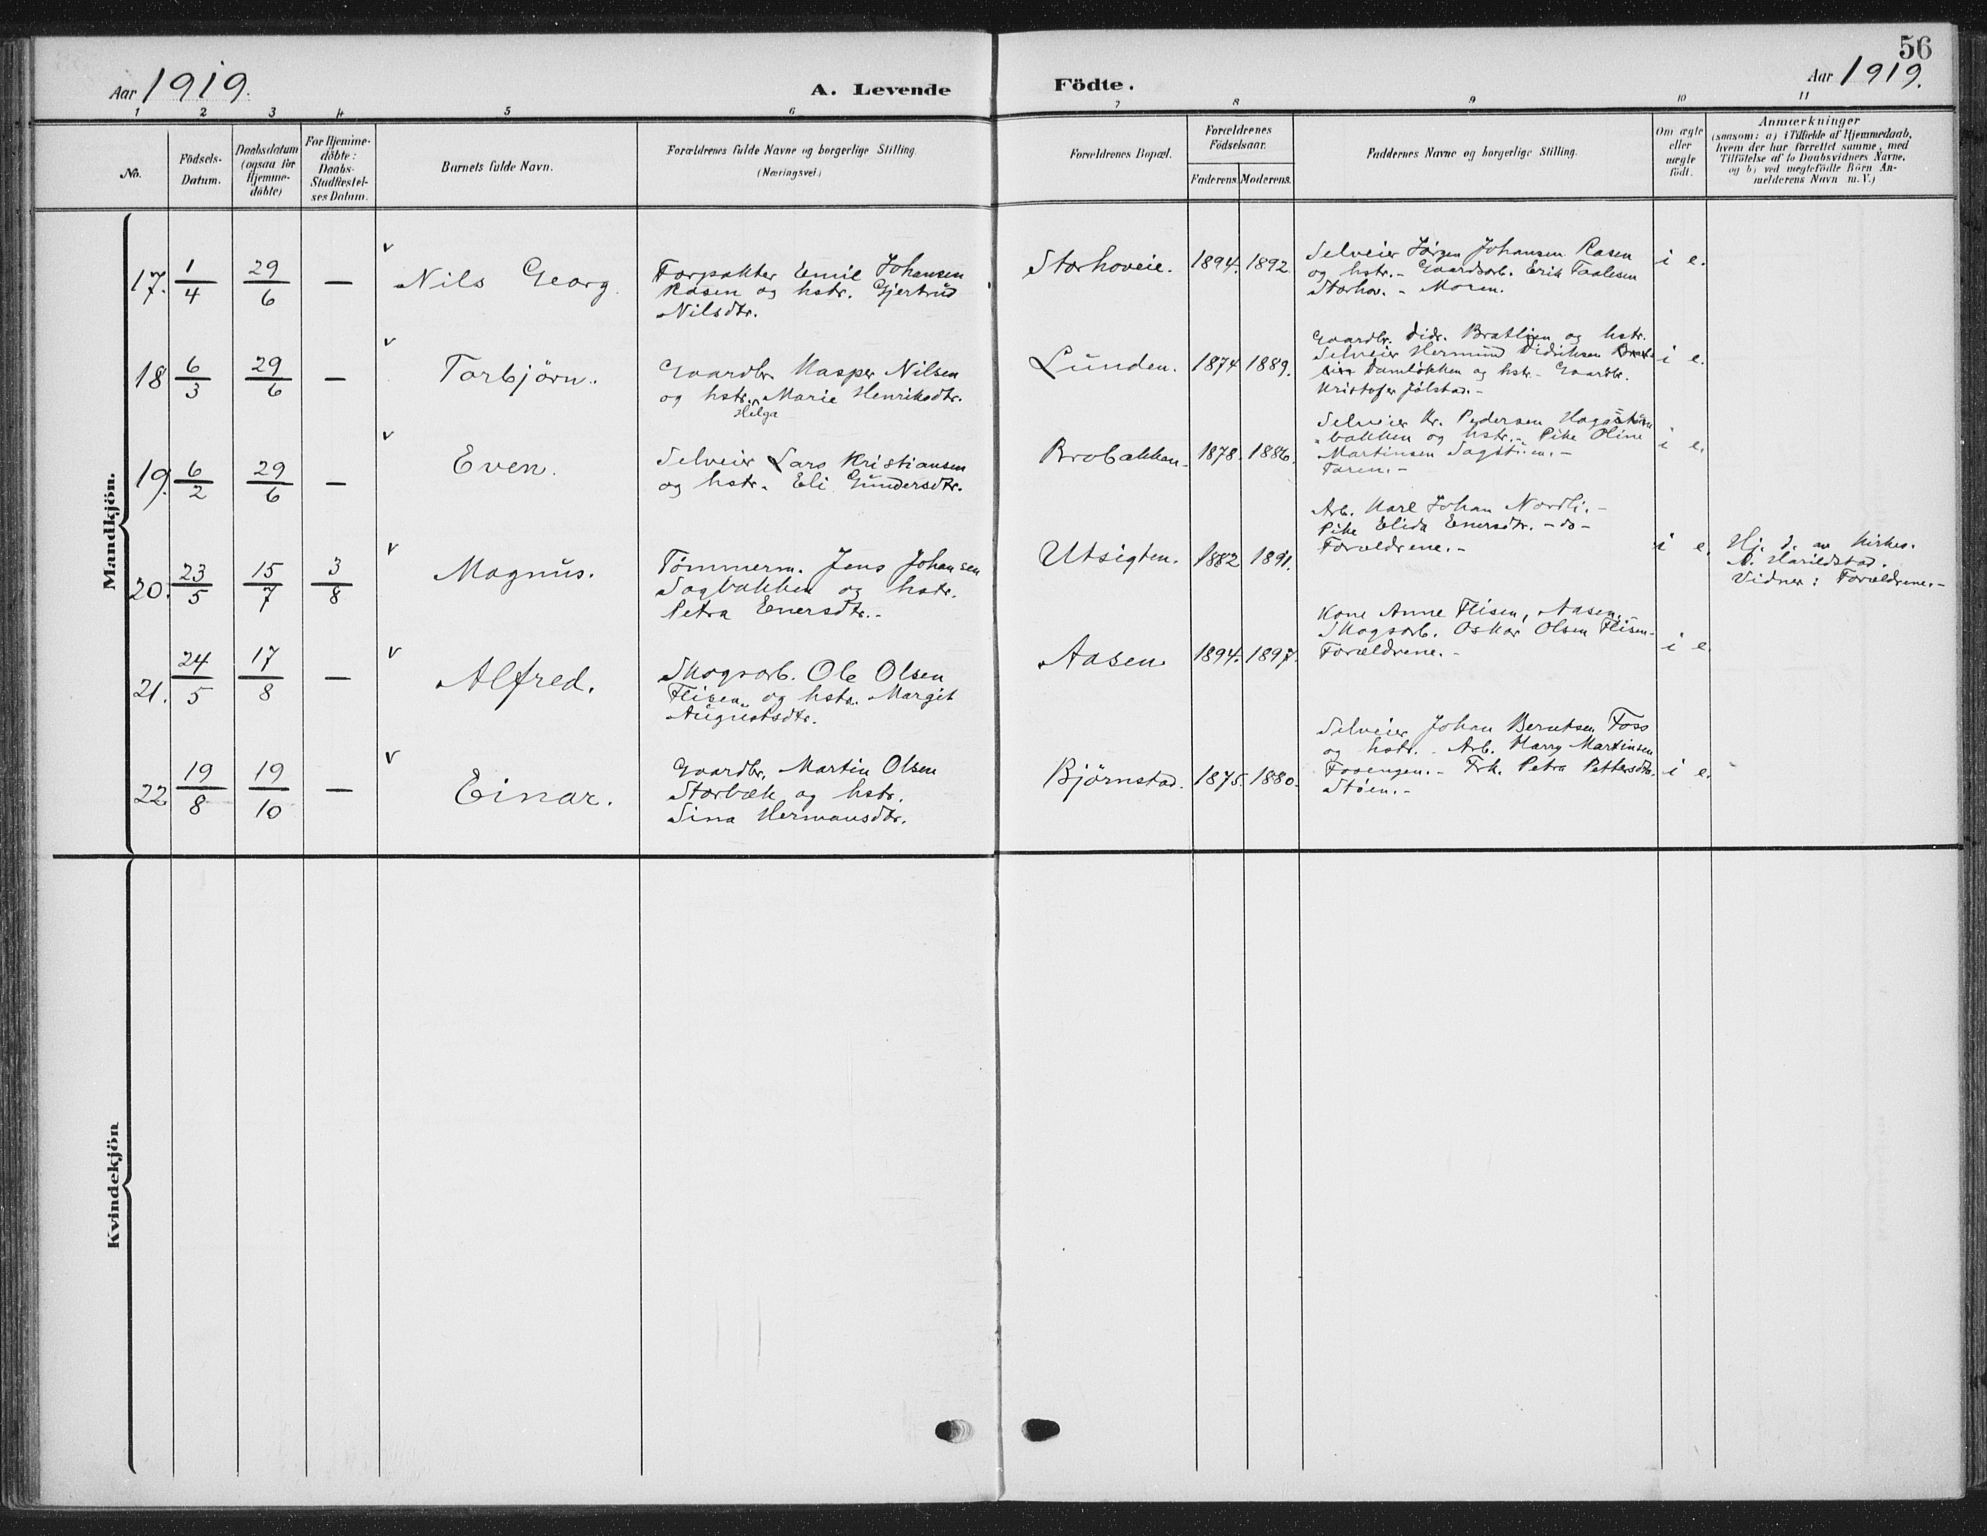 56
Aar 1919.
A. Levende
Födte.
Aar 1919.
1 2 3 4 5 6 7 8 9 10 11
No.
Födsels-
Datum.
Daabsdatum
(ogsaa for
Hjemme-
döbte)
For Hjemme-
döbte:
Daabs-
Stadfæstel-
ses Datum.
Barnets fulde Navn.
Forældrenes fulde Navne og borgerlige Stilling.
(Næringsvei)
Forældrenes Bopæl.
Forældrenes
Födselsaar.
Faderens Moderens.
Faddernes Navne og borgerlige Stilling.
Om ægte
eller
uægte
født.
Anmærkninger
(saasom: a) i Tilfælde af Hjemmedaab,
hvem der har forrettet samme, med
Tilföielse af to Daabsvidners Navne,
og b) ved uægtefödte Börn An-
melderens Navn m. V.)
Mandkjön.
17. 1/4 29/6 — v Nils Georg.
Forpakter Emil Johansen
Rasen og hstr. Gjertrud
Nilsdtr.
Storhoveie. 1894. 1892
Selveier Jørgen Johansen Rasen
og hstr. - Gaardsarb. Erik Taalesen
Storhov. - Moren.
i e.
18 6/3 29/6 — v Torbjörn.
Gaardbr. Kasper Nilsen
og hstr. Marie Henriksdtr.
Helga
Lunden. 1874 1889.
Gaardbr. Didr. Bratlien og hstr.
Selveier Hermund Didriksen Brat-
lien Damløkken og hstr - Gaardbr.
Kristofer Jølstad. -
i e.
19. 6/2 29/6 — v Even.
Selveier Lars Kristiansen
og hstr. Eli Gundersdtr.
Brobakken 1878. 1886.
Selveier Kr. Pedersen
bakken og hstr. - Pike Oline
Martinsen Sagstuen. -
Faren. -
i e.
20. 23/5 15/7 3/8 v Magnus.
Tømmerm. Jens Johansen
Sagbakken og hstr.
Petra Enersdtr. -
Utsigten. 1882 1891.
Arb. Karl Johan Nordli. -
Pike Elida Enersdtr. - do -
Forældrene. -
i e.
Hj. d. av Kirkes.
A. Harildstad.
Vidner: Forældrene. -
21. 24/5 17/8 — v Alfred.
Skogsarb. Ole Olsen
Flisen og hstr. Margit
Augustsdtr.
Aasen 1894. 1897.
Kone Anne Flisen, Aasen. -
Skogsarb. Oskar Olsen Flisen -
Forældrene. -
i e
22 19/8 19/10 — v Einar.
Gaardbr. Martin Olsen
Storbæk og hstr.
Sina Hermansdtr.
Bjørnstad. 1875. 1880.
Selveier Johan Berntsen Foss
og hstr. - Arb. Harry Martinsen
Fossengen. - Frk. Petra Pettersdtr.
Støen. -
i e.
Kvindekjön